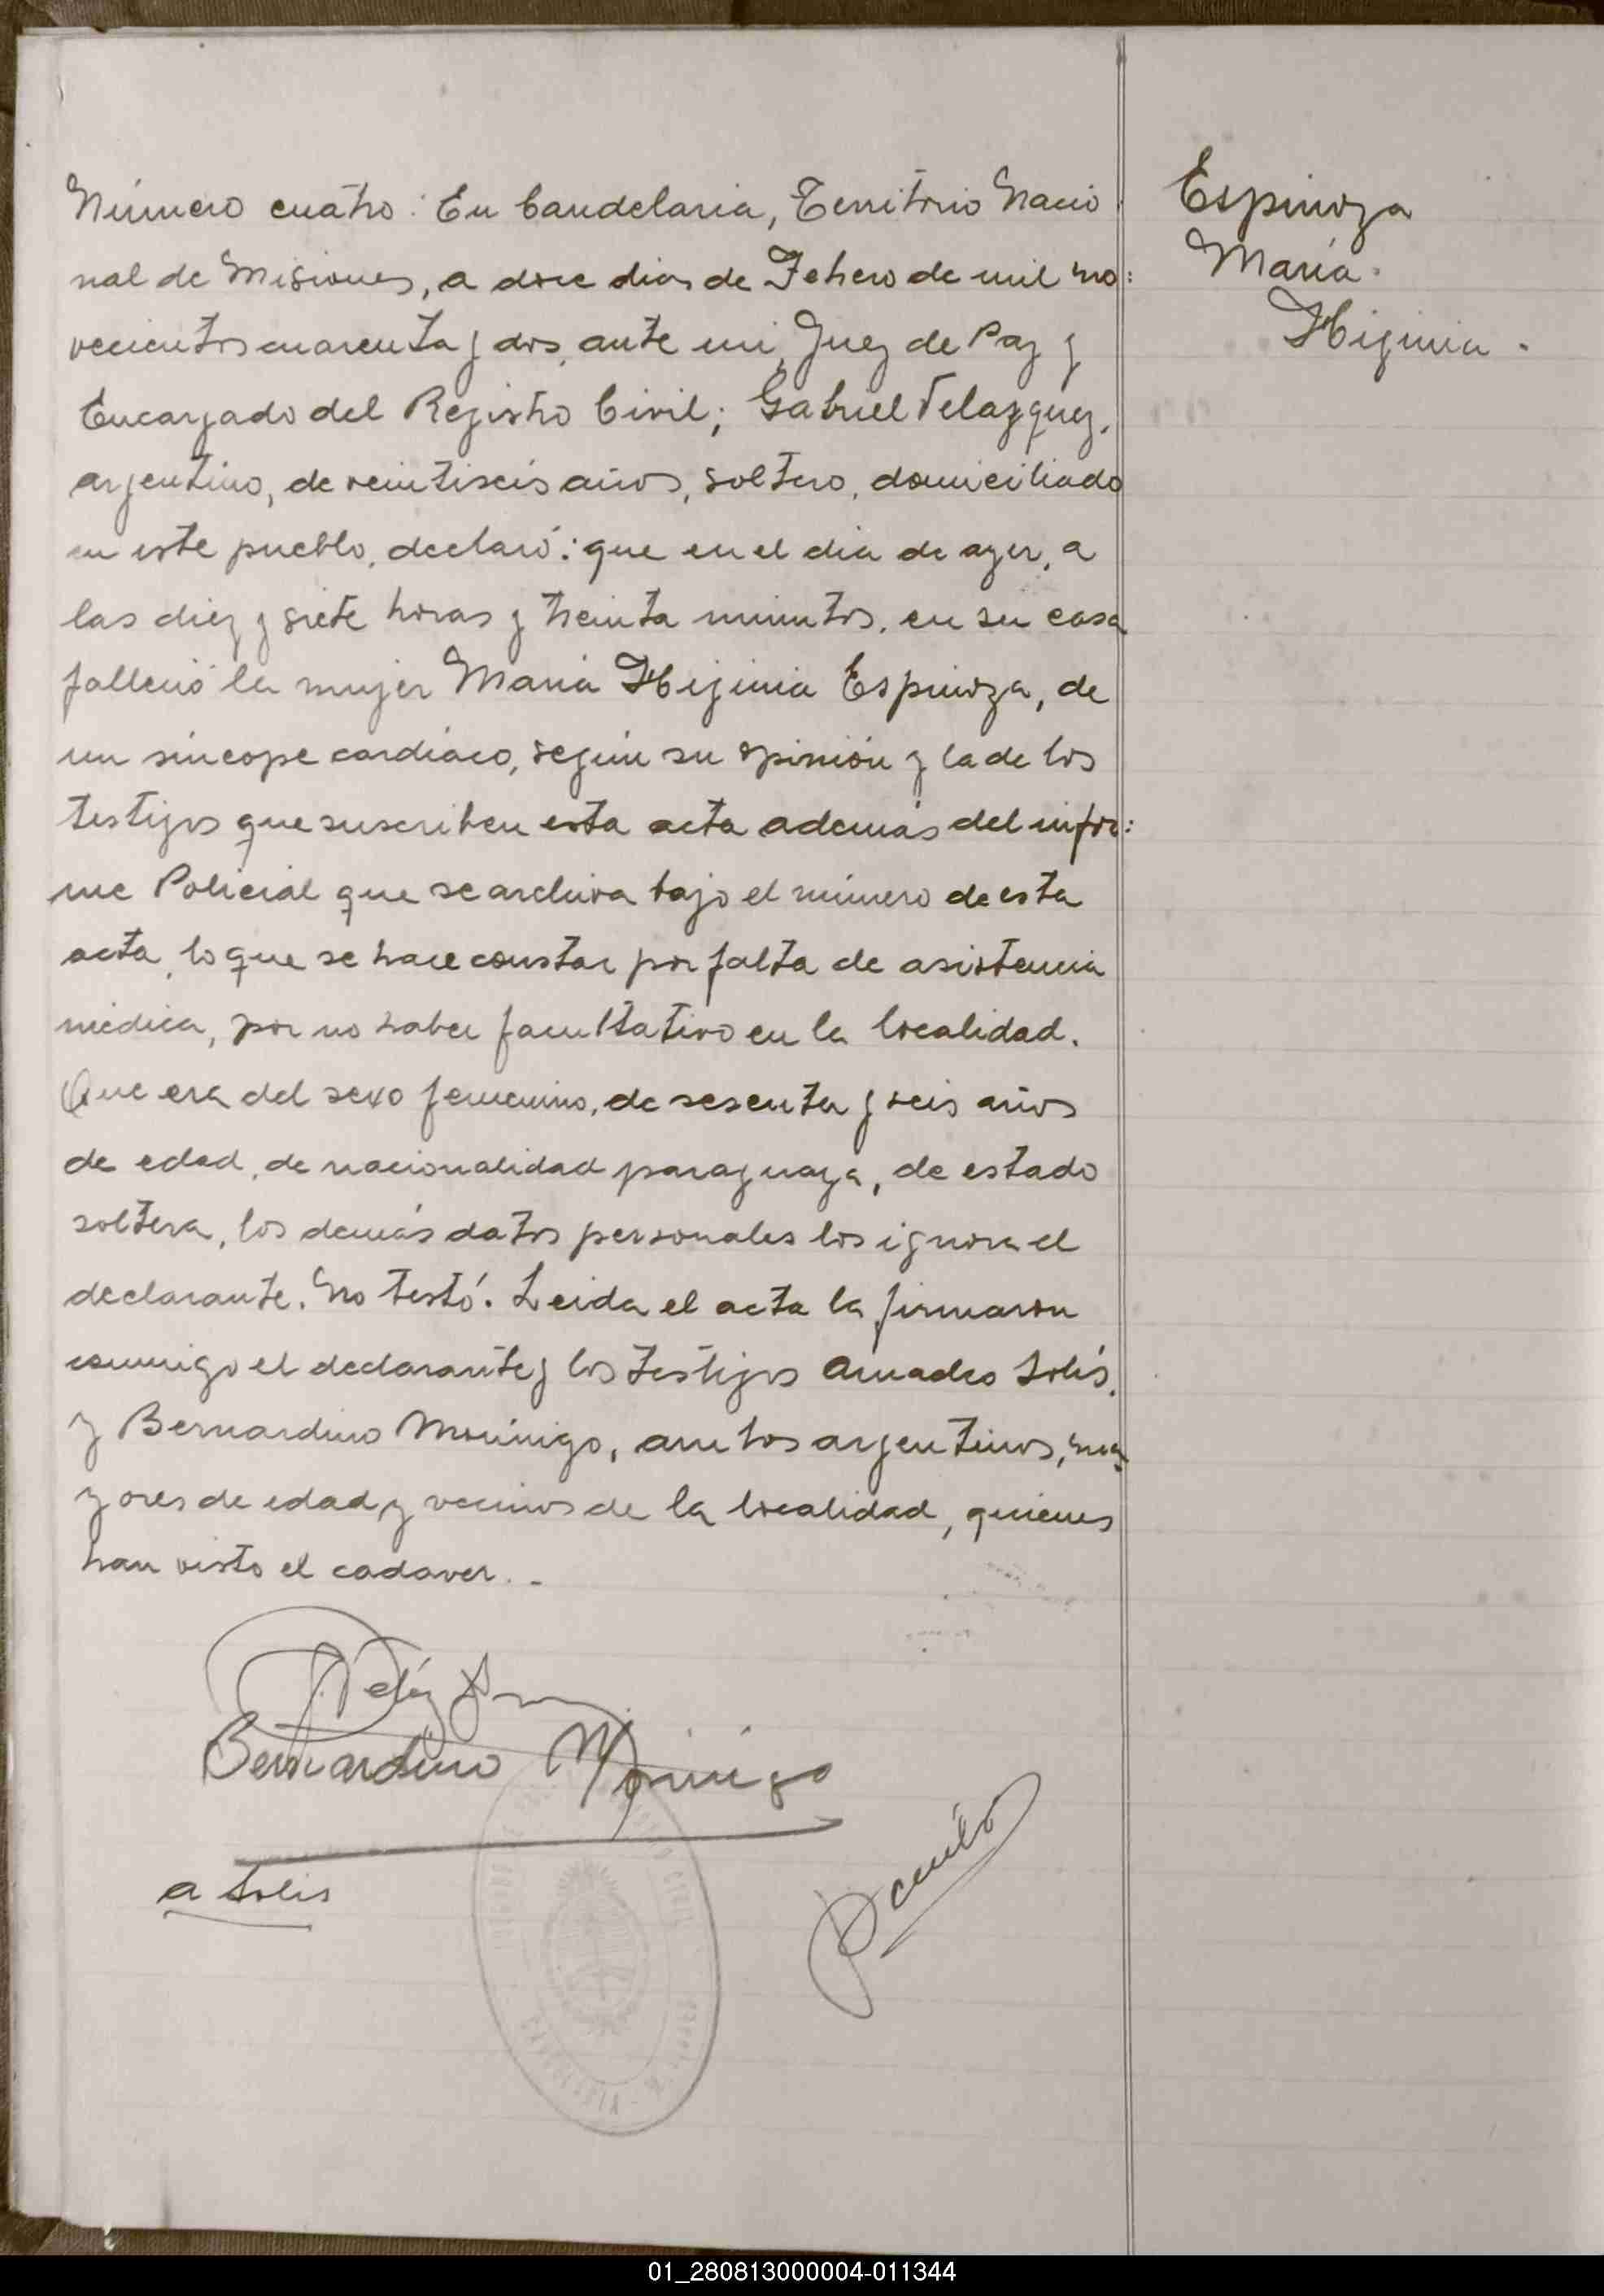 Número cuatro: En Candelaria, Territorio Nacio
nal de Misiones, a doce dias de Febrero de mil no:
vecientos cuarenta y dos, ante mi, Juez de Paz y
Encargado del Registro Civil; Gabriel Velazquez,
argentino, de veintiseis años, soltero, domiciliado
en este pueblo, declaró: que en el dia de ayer, a
las diez y siete horas y treinta minutos, en su casa
falleció la mujer Maria Higinia Espinoza, de
un síncope cardíaco, según su opinión y la de los
testigos que suscriben esta acta además del infor:
me Policial que se archiva bajo el número de esta
acta, lo que se hace constar por falta de asistencia
médica, por no haber facultativo en la localidad.
Que era del sexo femenino, de sesenta y seis años
de edad, de nacionalidad paraguaya, de estado
soltera, los demás datos personales los ignora el
declarante. No testó. Leida el acta la firmaron
conmigo el declarante y los testigos Amadeo Solís,
y Bernardino Morínigo, ambos argentinos, ma
yores de edad y vecinos de la localidad, quienes
han visto el cadaver. -
Espinoza
María
Higinia.
Bernardino Morinigo
A Solis
01_280813000004-011344